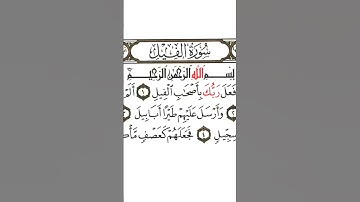 سُورَةُ الْفِيلِ
بِسْمِ اللَّهِ الرَّحْمَٰنِ الرَّحِيمِ
فَعَلَ رَبُّكَ بِأَصْحَٰبِ ٱلْفِيلِ ١
٢ وَأَرْسَلَ عَلَيْهِمْ طَيْرًا أَبَابِيلَ ٣
سِجِّيلٍ ٤ فَجَعَلَهُمْ كَعَصْفٍ